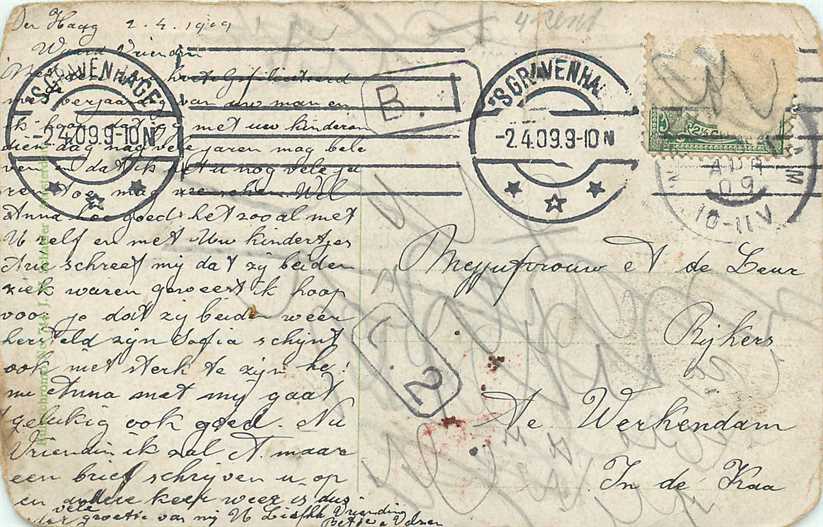 Den Haag 2.4.1909
Waarde Vriendin
hartelijk gefeliciteerd
verjaardag van uw man en
ik hoop dat gij met uw kinderen
dien dag nog vele jaren mag bele
ven en dat ik het u nog vele ja
ren toe mag wenschen. Wel
Anna hoe goed het zooal met
U zelf en met Uw kindertjes
schreef mij dat zij beiden
ziek waren geweest ik hoop
voor je dat zij beiden weer
hersteld zijn Sofia schijnt
ook niet sterk te zijn he
nu Anna met mij gaat
gelukig ook goed. Nu
Vriendin ik zal A. maar
een brief schrijven u op
en andere keer weer is dus
vele
groetjes van mij U Liefh Vriendin
Betje
4 cent
'S GRAVENHAGE
-2.4.09.9-10N
B.
'SGRAVENHA
-2.4.09.9-10N
2½
APR
09
10-11V
Mejufvrouw A de Leur
Rijkers
Te Werkendam
In de Kaa
2